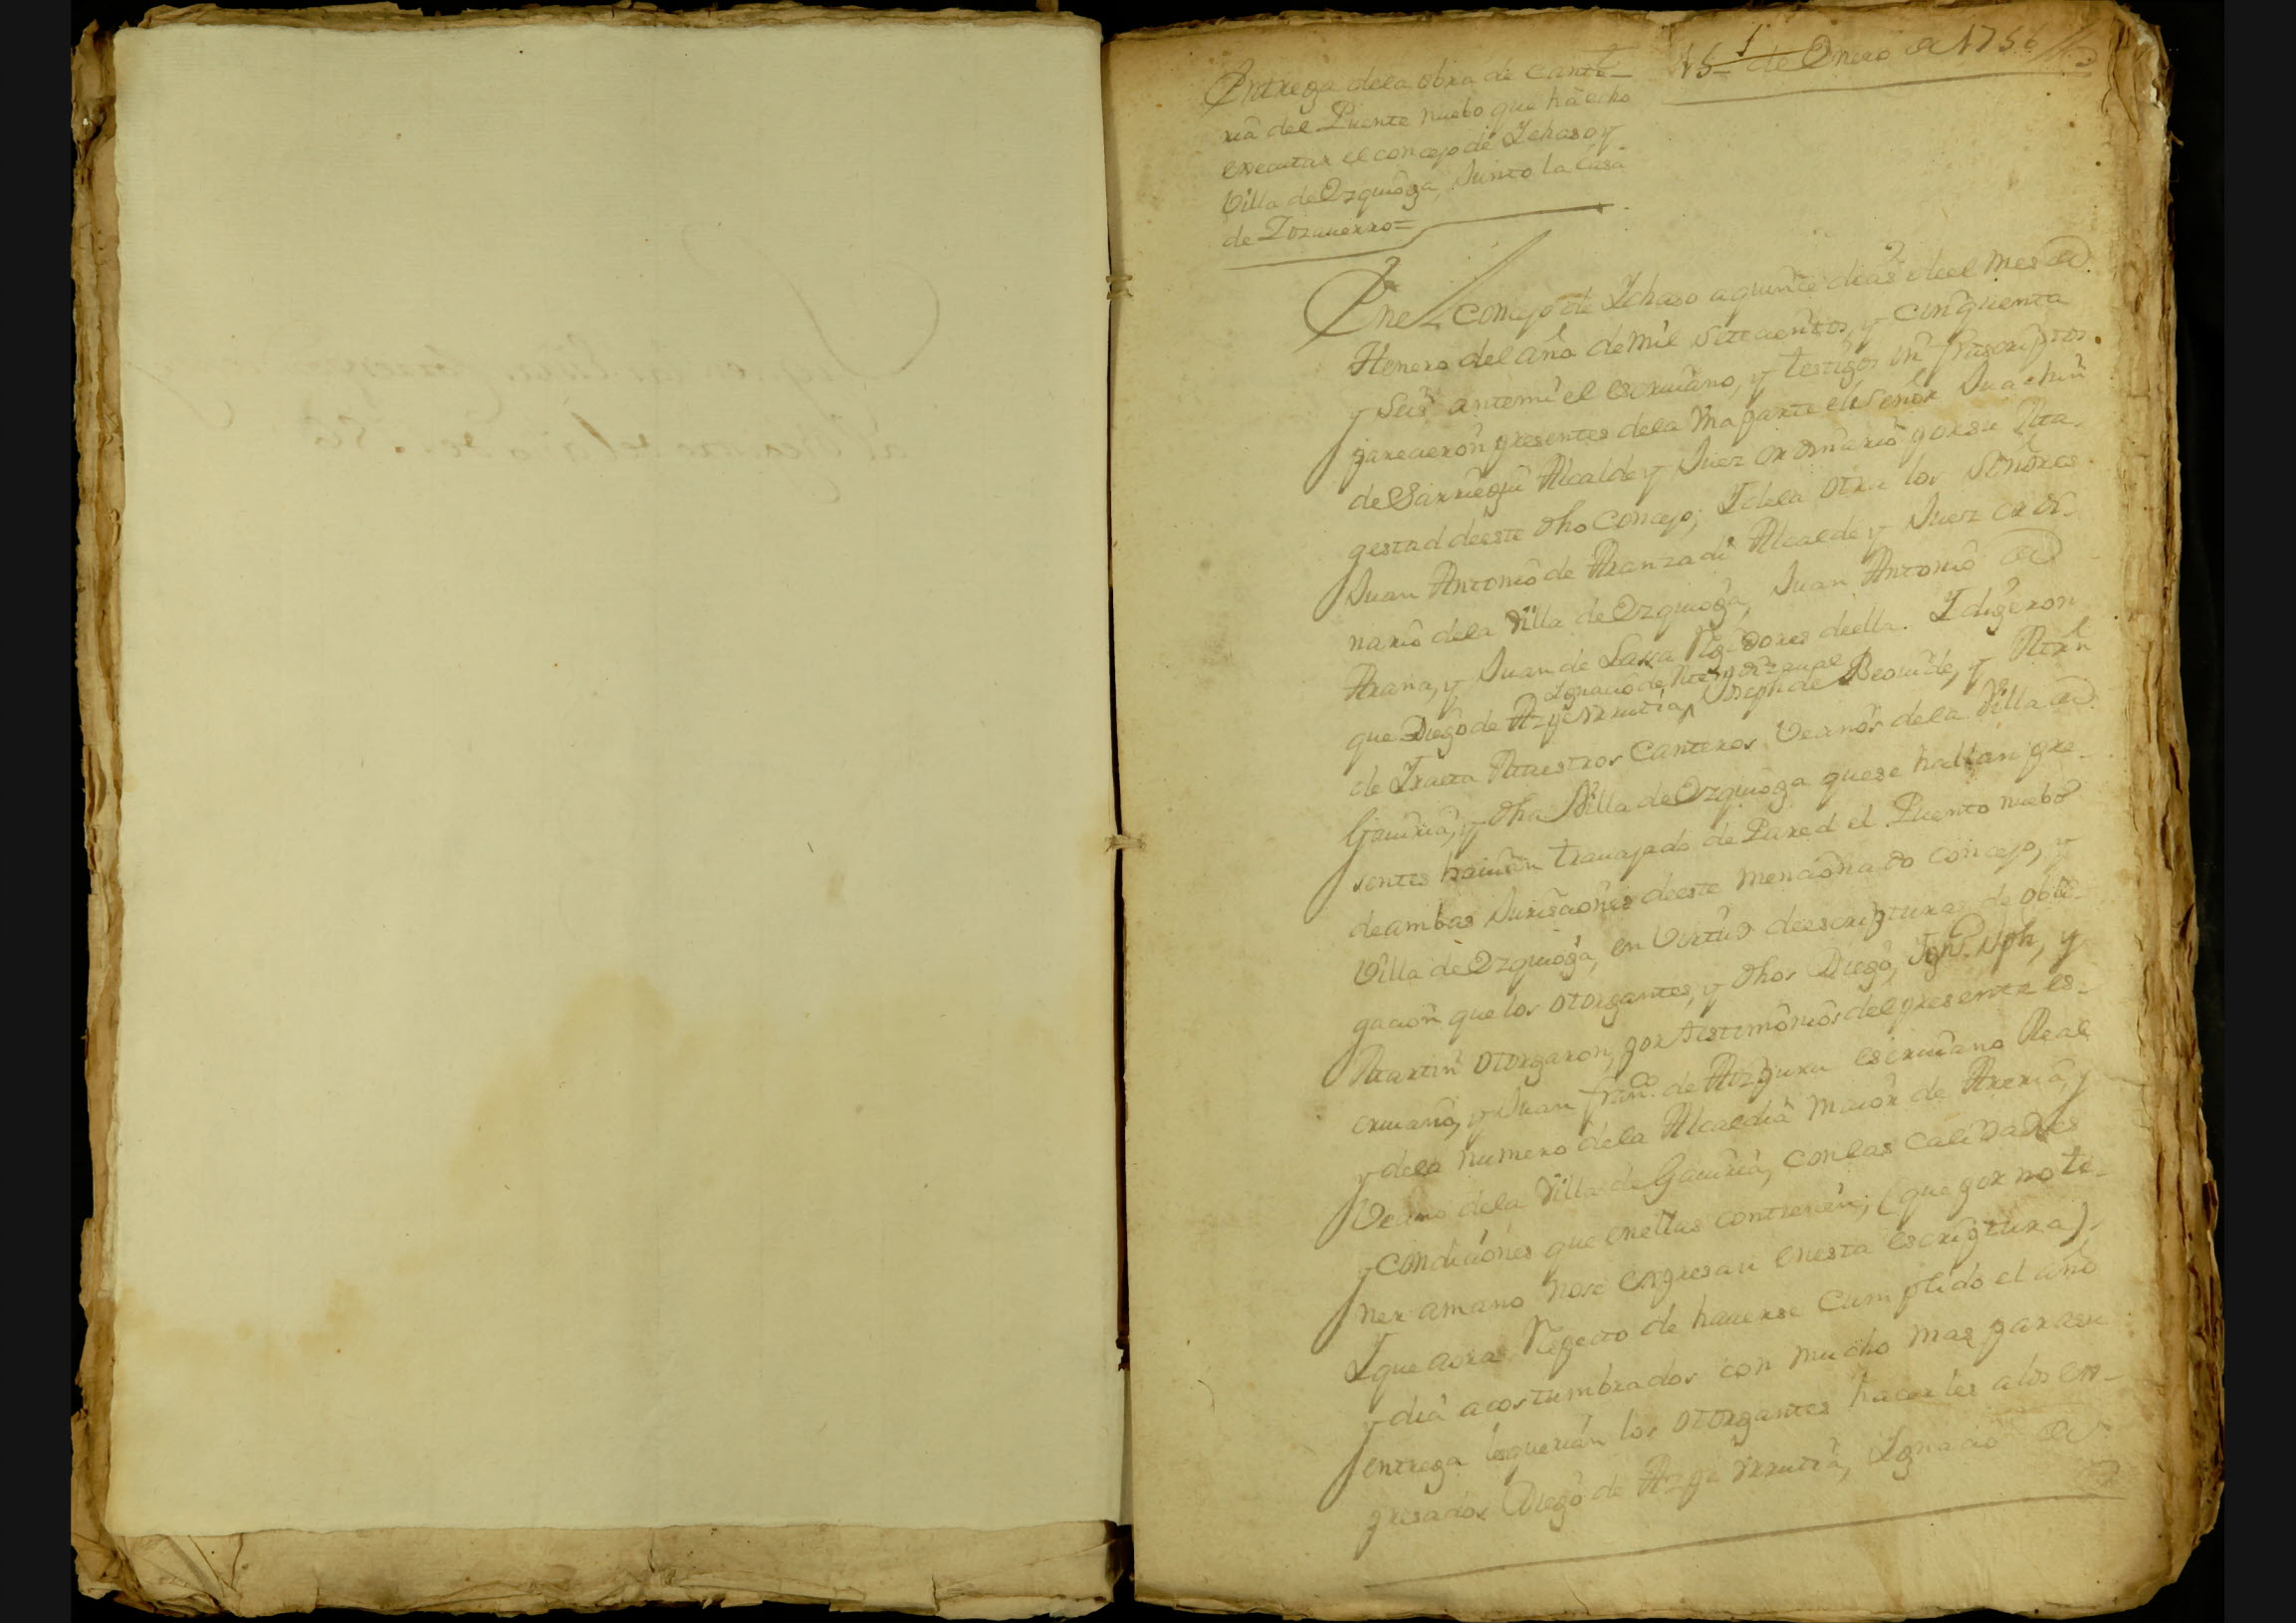 15 de Enero de 1756
1
Entrega dela obra de cante-
ria del Puente nuebo que hà echo
executar el concejo de Ichaso y
Villa de Ezquioga, Junto la Casa
de =
Enel concejo de Ichaso a quince dias deel Mes de
Henero del año de mil Setecientos, y cinquenta
y Seis antemi el escrivano, y testigos infrascriptos
parecieron presentes dela vna parte el Señor Juachin
de Sarriegui Alcalde y Juez ordinario por su Ma-
gestad deeste dho Concejo; I dela otra los Señores
Juan Antonio de Aranzadi Alcalde y Juez ordi-
nario dela Villa de Ezquioga, Juan Antonio de
Arana, y Juan de Lasa Regidores deella. I digeron
que Diego de Azpiurrutia, Ignacio de Joseph de Beovide, y Mrn
de Iraeta Maestros Canteros Vecinos dela Villa de
Gaviria, y dha Villa de Ezquioga quese hallan pre-
sentes havian travajado de Pared el Puento nuebo
deambas Jurisciones deeste mencionado concejo, y
Villa de Ezquioga, en Virtud deescripturas de obli-
gacion que los otorgantes, y dhos Diego, Igno. Jph, y
Martin otorgaron, por testimonios del presente es-
crivano, y Juan franco. de Aizpuru escrivano Real
y dela numero dela Alcaldia maior de Areria, y
Vecino dela Villa de Gaviria, conlas calidades
y condiciones que enellas contienen; (que por note-
ner amano nose expresan enesta escriptura).
I que aora Respecto de haverse cumplido el año
y dia acostumbrados con mucho mas para su
entrega los otorgantes hacerles alos ex-
presados Diego de Azpiurrutia, Ignacio de